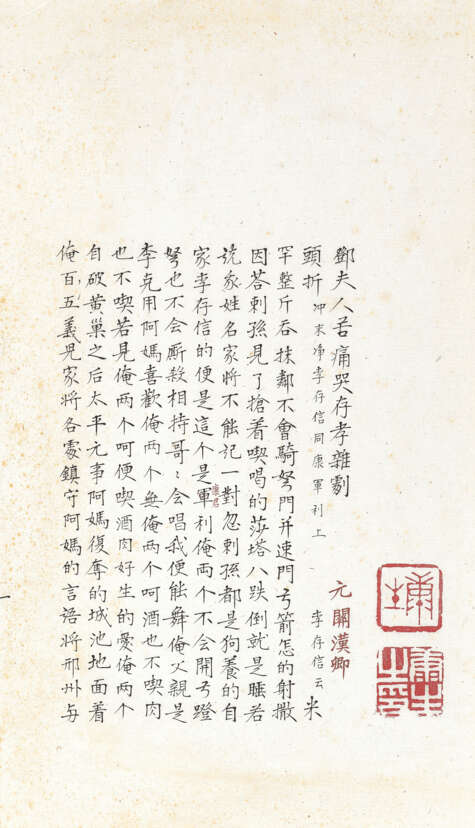 鄧夫人苦痛哭存孝雜劇 元關漢卿
頭折 冲末淨李存信同康軍利上 李存信云 米
罕整斤吞抹鄰不會騎弩門并速門弓箭怎的射撒
因荅剌孫見了搶着喫喝的莎塔八跌倒就是睡若
说家姓名家將不能記一對忽剌孫都是狗養的自
家李存信的便是這个是康君軍利俺両个不会開弓蹬
弩也不会厮殺相持哥〻会唱我便能舞俺父親是
李克用阿媽喜歡俺两个無俺两个呵酒也不喫肉
也不喫若見俺两个呵便喫酒肉好生的愛俺两个
自破黄巢之后太平无事阿媽復奪的城池地面着
俺百五義兒家將各處鎮守阿媽的言語將邢州与